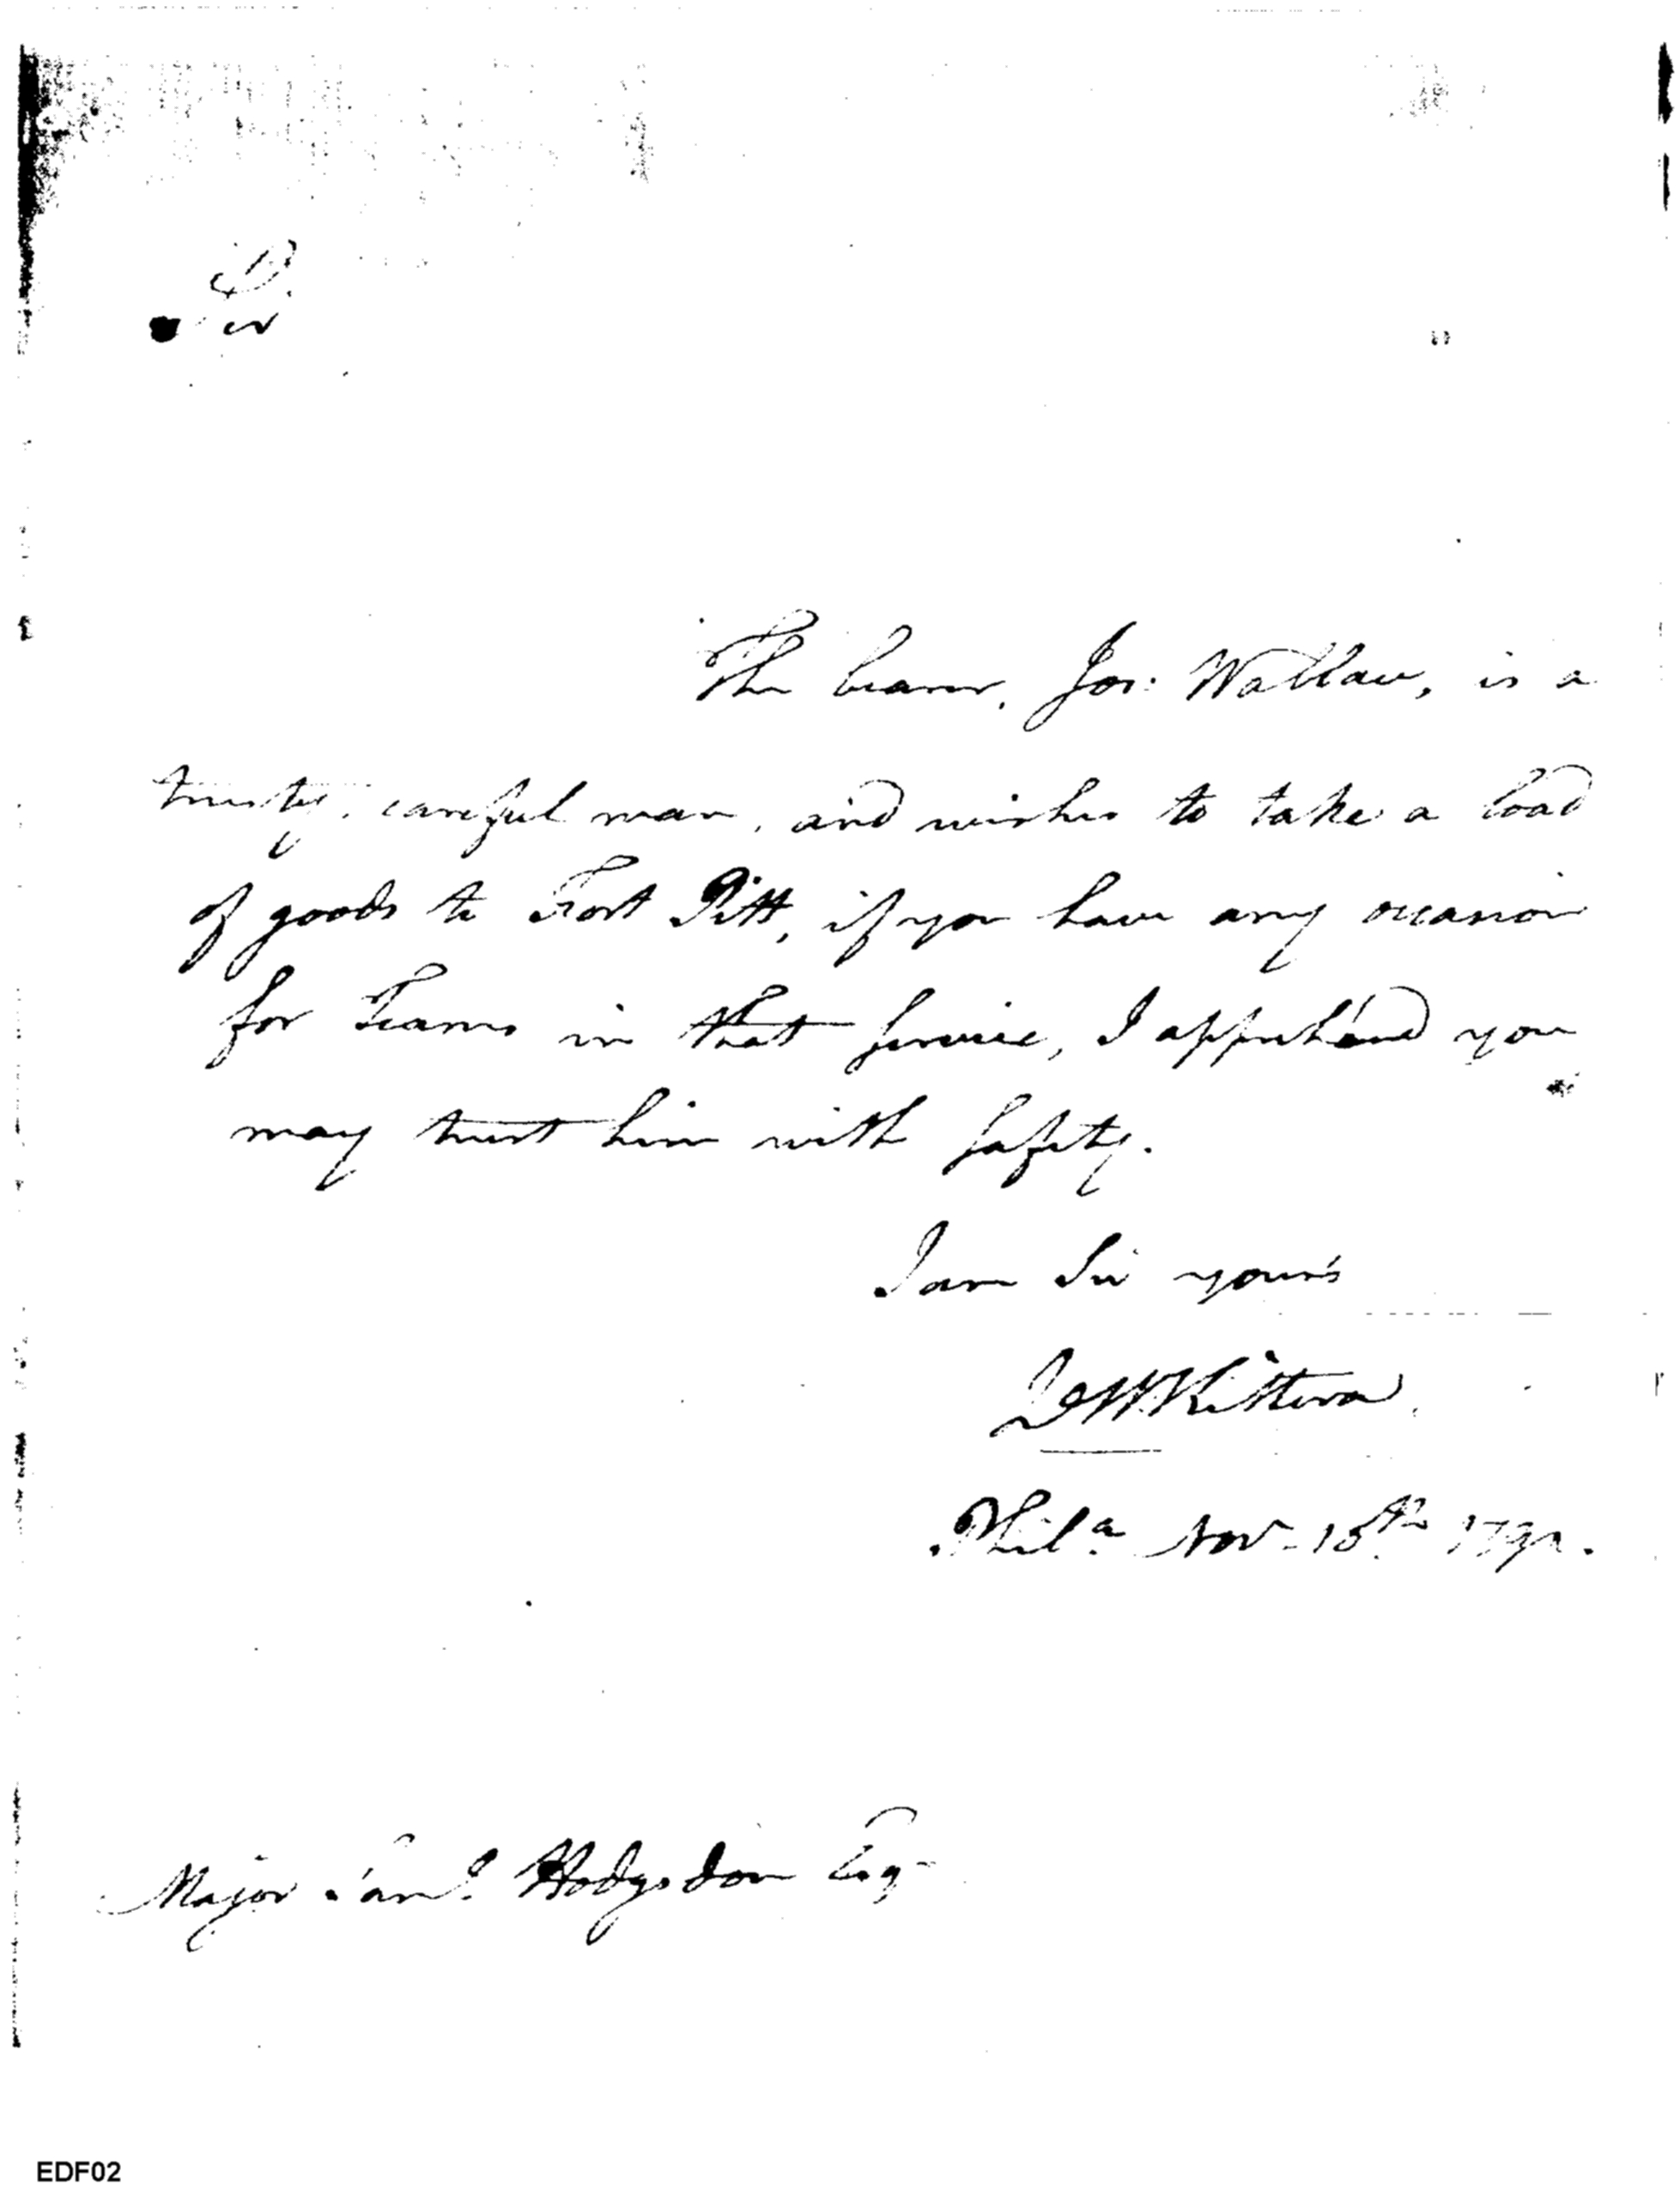 Sir
The bearer, Jos: Wallace, is a
trusty, careful man, and wishes to take a load
of goods to Fort Pitt, if you have any occasion
for Teams in that service, I apprehend you
may trust him with safety.
I am Sir your's
J W Kittera
Phila Nov. 1792.
Major Saml. Hodgsdon Esq
EDF02